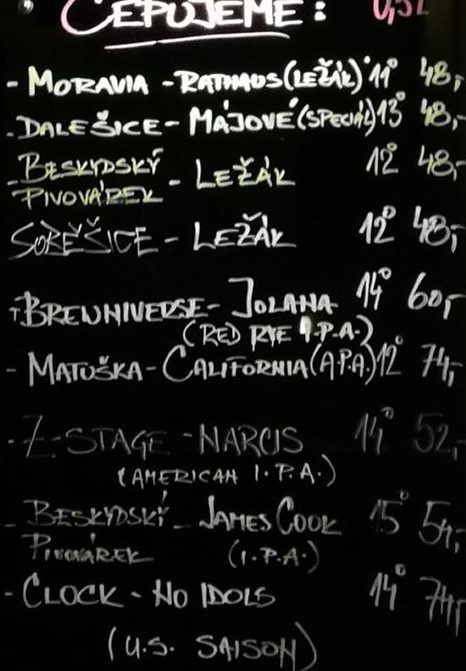 ČEPUJEME: 0,5L
- MORAVIA - RATHAUS (LEŽÁK) 11° 48,-
- DALEŠICE - MÁJOVÉ (SPECIÁL) 13° 48,-
- BESKYDSKÝ PIVOVÁREK - LEŽÁK 12° 48,-
SOBĚŠICE - LEŽÁK 12° 48,-
- BREWNIVERSE - JOLANA 14° 60,-
(RED RYE I.P.A.)
- MATUŠKA - CALIFORNIA (A.P.A.) 12° 74,-
- Z-STAGE - NARCIS 14° 52,-
(AMERICAN I.P.A.)
- BESKYDSKÝ - JAMES COOK 15° 54,-
PIVOVÁREK (I.P.A.)
- CLOCK - NO IDOLS 14° 74,-
(U.S. SAISON)